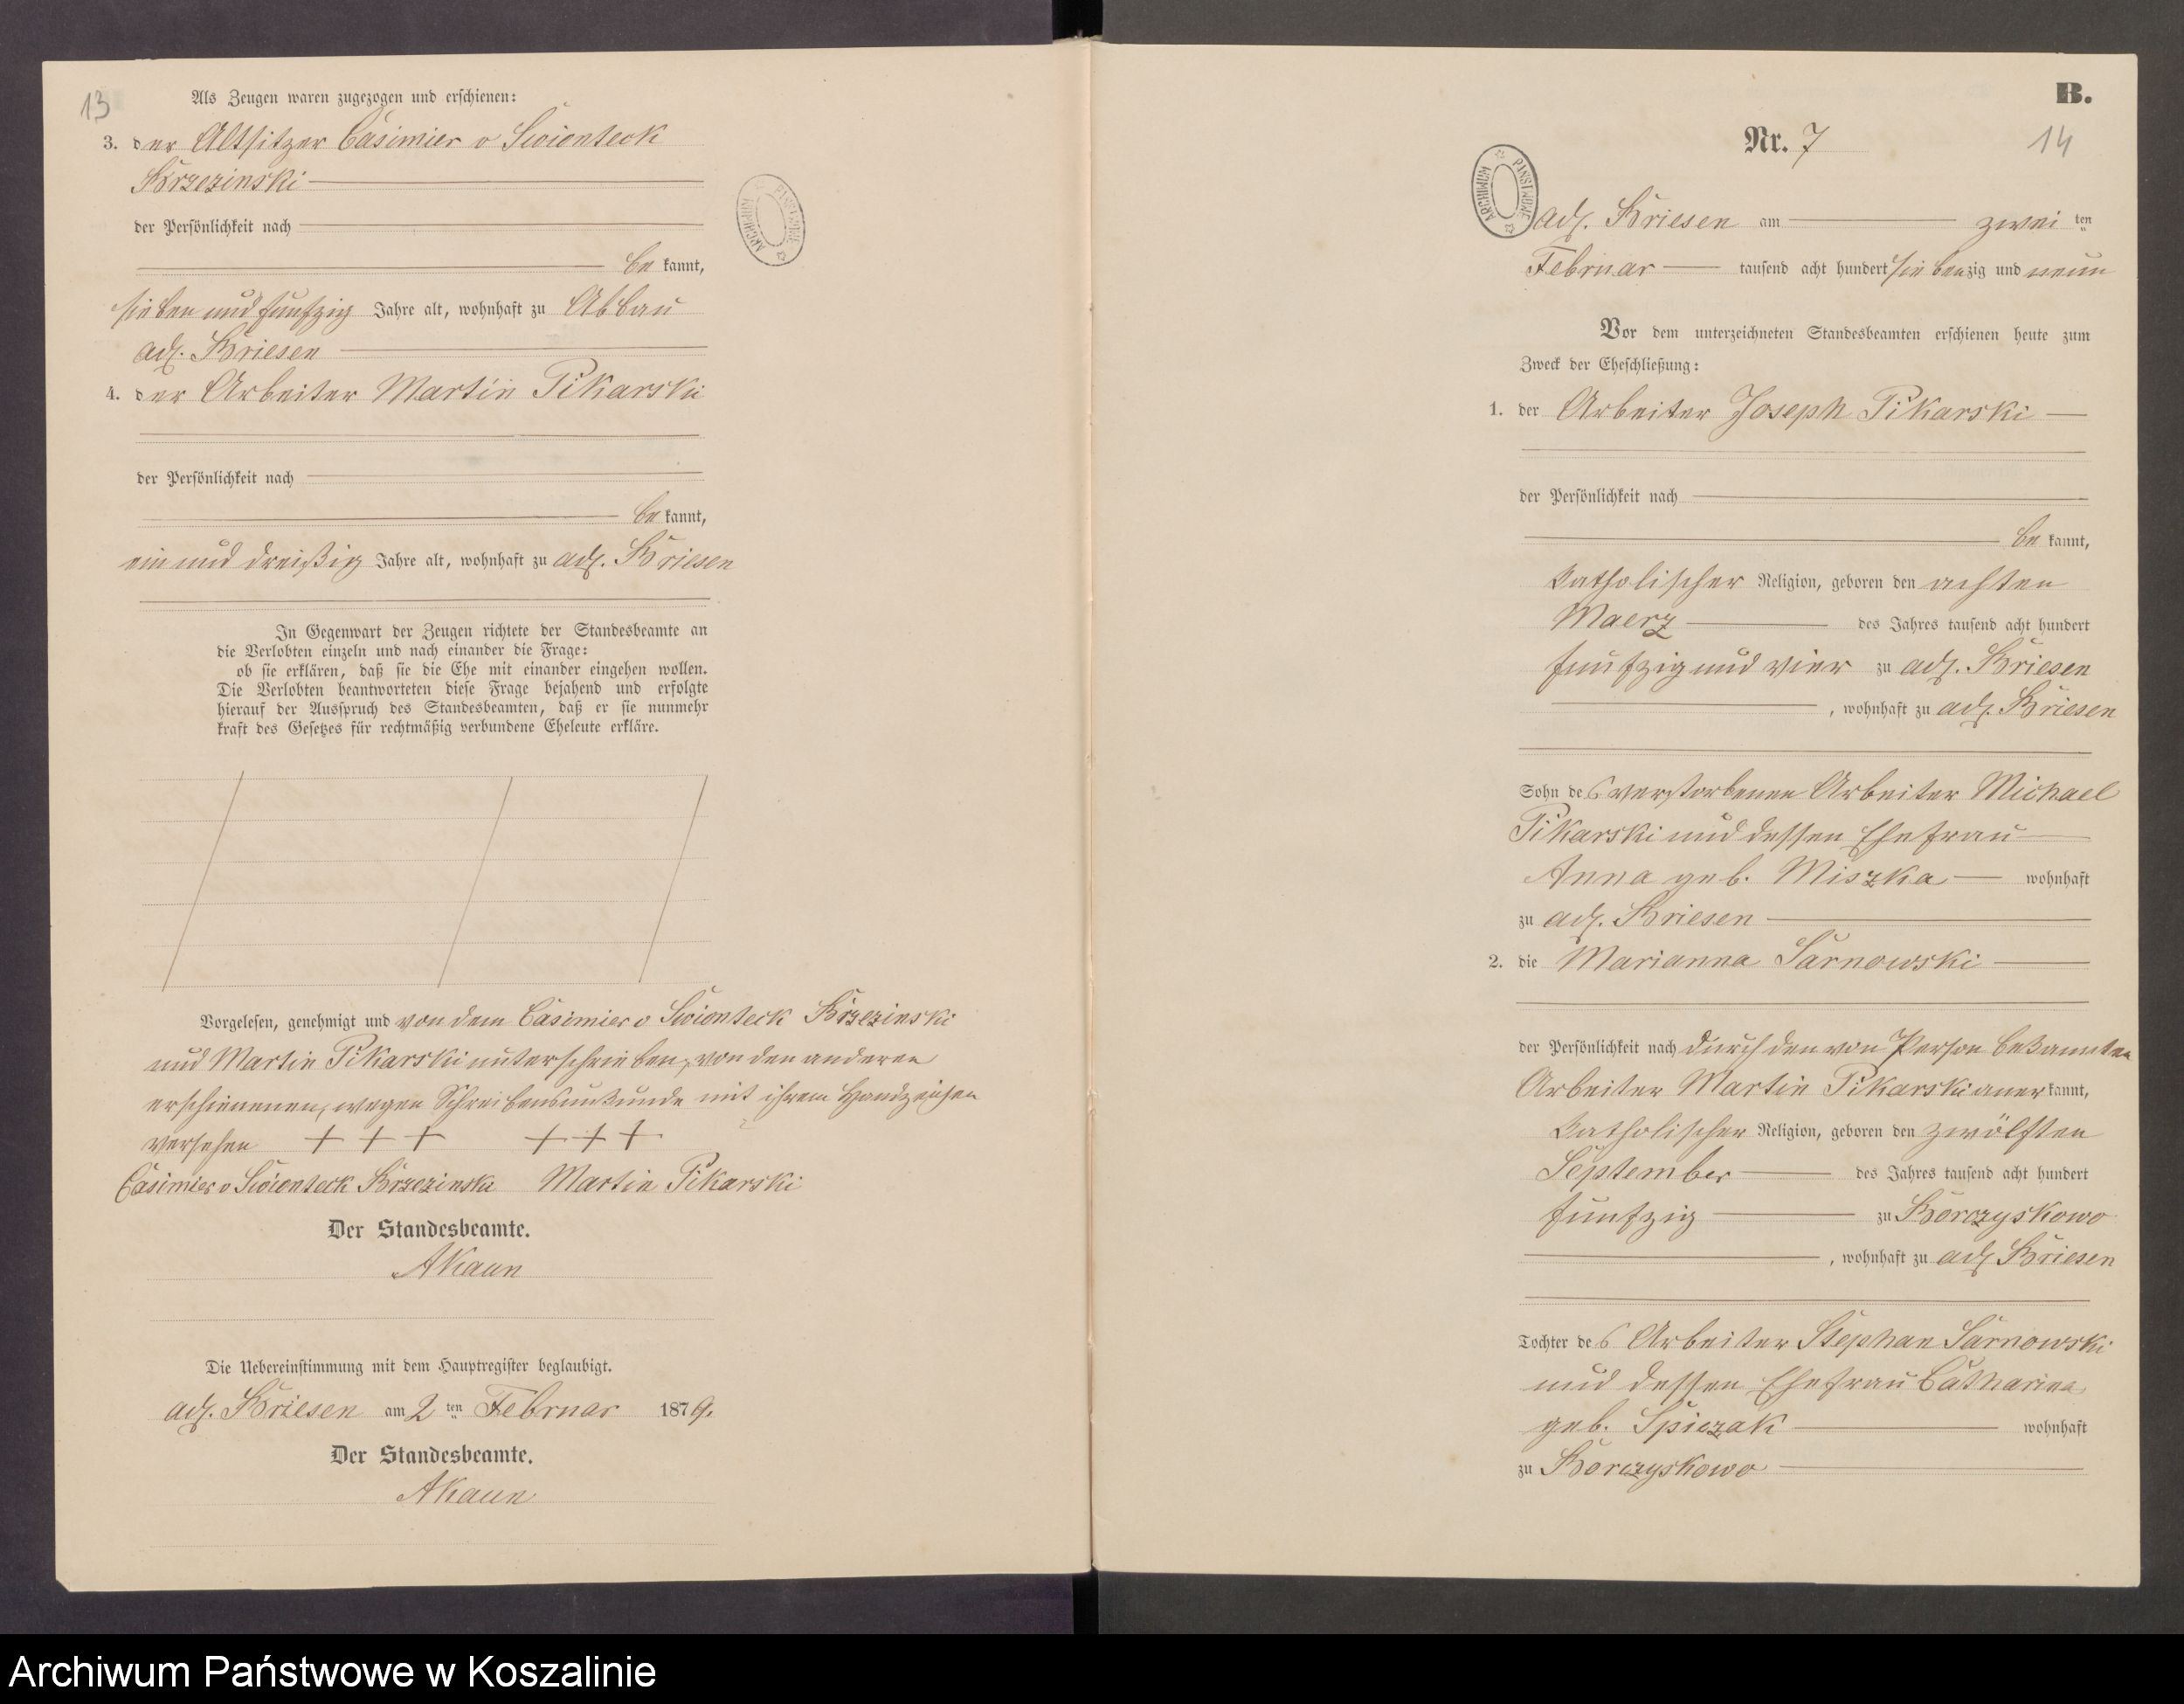 13
Als Zeugen waren zugezogen und erschienen:
3. der Altsitzer Casimier v Swionteck
Brzezinski
der Persönlichkeit nach
be kannt,
sieben und funfzig Jahre alt, wohnhaft zu Abbau
adl. Briesen
4. der Arbeiter Martin Pikarski
der Persönlichkeit nach
be kannt,
ein und dreißig Jahre alt, wohnhaft zu adl. Briesen
In Gegenwart der Zeugen richtete der Standesbeamte an
die Verlobten einzeln und nach einander die Frage:
ob sie erklären, daß sie die Ehe mit einander eingehen wollen.
Die Verlobten beantworteten diese Frage bejahend und erfolgte
hierauf der Ausspruch des Standesbeamten, daß er sie nunmehr
kraft des Gesetzes für rechtmäßig verbundene Eheleute erkläre.
Vorgelesen, genehmigt und von dem Casimier v Swionteck Brzezinski
und Martin Pikarski unterschrieben, von den anderen
erschienenen, wegen Schreibensunkunde mit ihrem Handzeichen
versehen + + + + + +
Casimier v Swionteck Brzezinski Martin Pikarski
Der Standesbeamte.
AKaun
Die Uebereinstimmung mit dem Hauptregister beglaubigt.
adl. Briesen am 2 ten Februar 1879.
Der Standesbeamte.
AKaun
ARCHIWUM PAŃSTWOWE
B.
Nr. 7
14
ARCHIWUM PAŃSTWOWE
adl. Briesen am zwei ten
Februar tausend acht hundert siebenzig und neun
Vor dem unterzeichneten Standesbeamten erschienen heute zum
Zweck der Eheschließung:
1. der Arbeiter Joseph Pikarski
der Persönlichkeit nach
be kannt,
katholischer Religion, geboren den achten
Maerz des Jahres tausend acht hundert
funfzig und vier zu adl. Briesen
, wohnhaft zu adl. Briesen
Sohn des verstorbenen Arbeiter Michael
Pikarski und dessen Ehefrau
Anna geb. Miszka wohnhaft
zu adl. Briesen
2. die Marianna Sarnowski
der Persönlichkeit nach durch den von Person bekannten
Arbeiter Martin Pikarski anerkannt,
katholischer Religion, geboren den zwölften
September des Jahres tausend acht hundert
funfzig zu Borczyskowo
, wohnhaft zu adl. Briesen
Tochter des Arbeiter Stephan Sarnowski
und dessen Ehefrau Catharina
geb. Spiczak wohnhaft
zu Borczyskowo
Archiwum Państwowe w Koszalinie